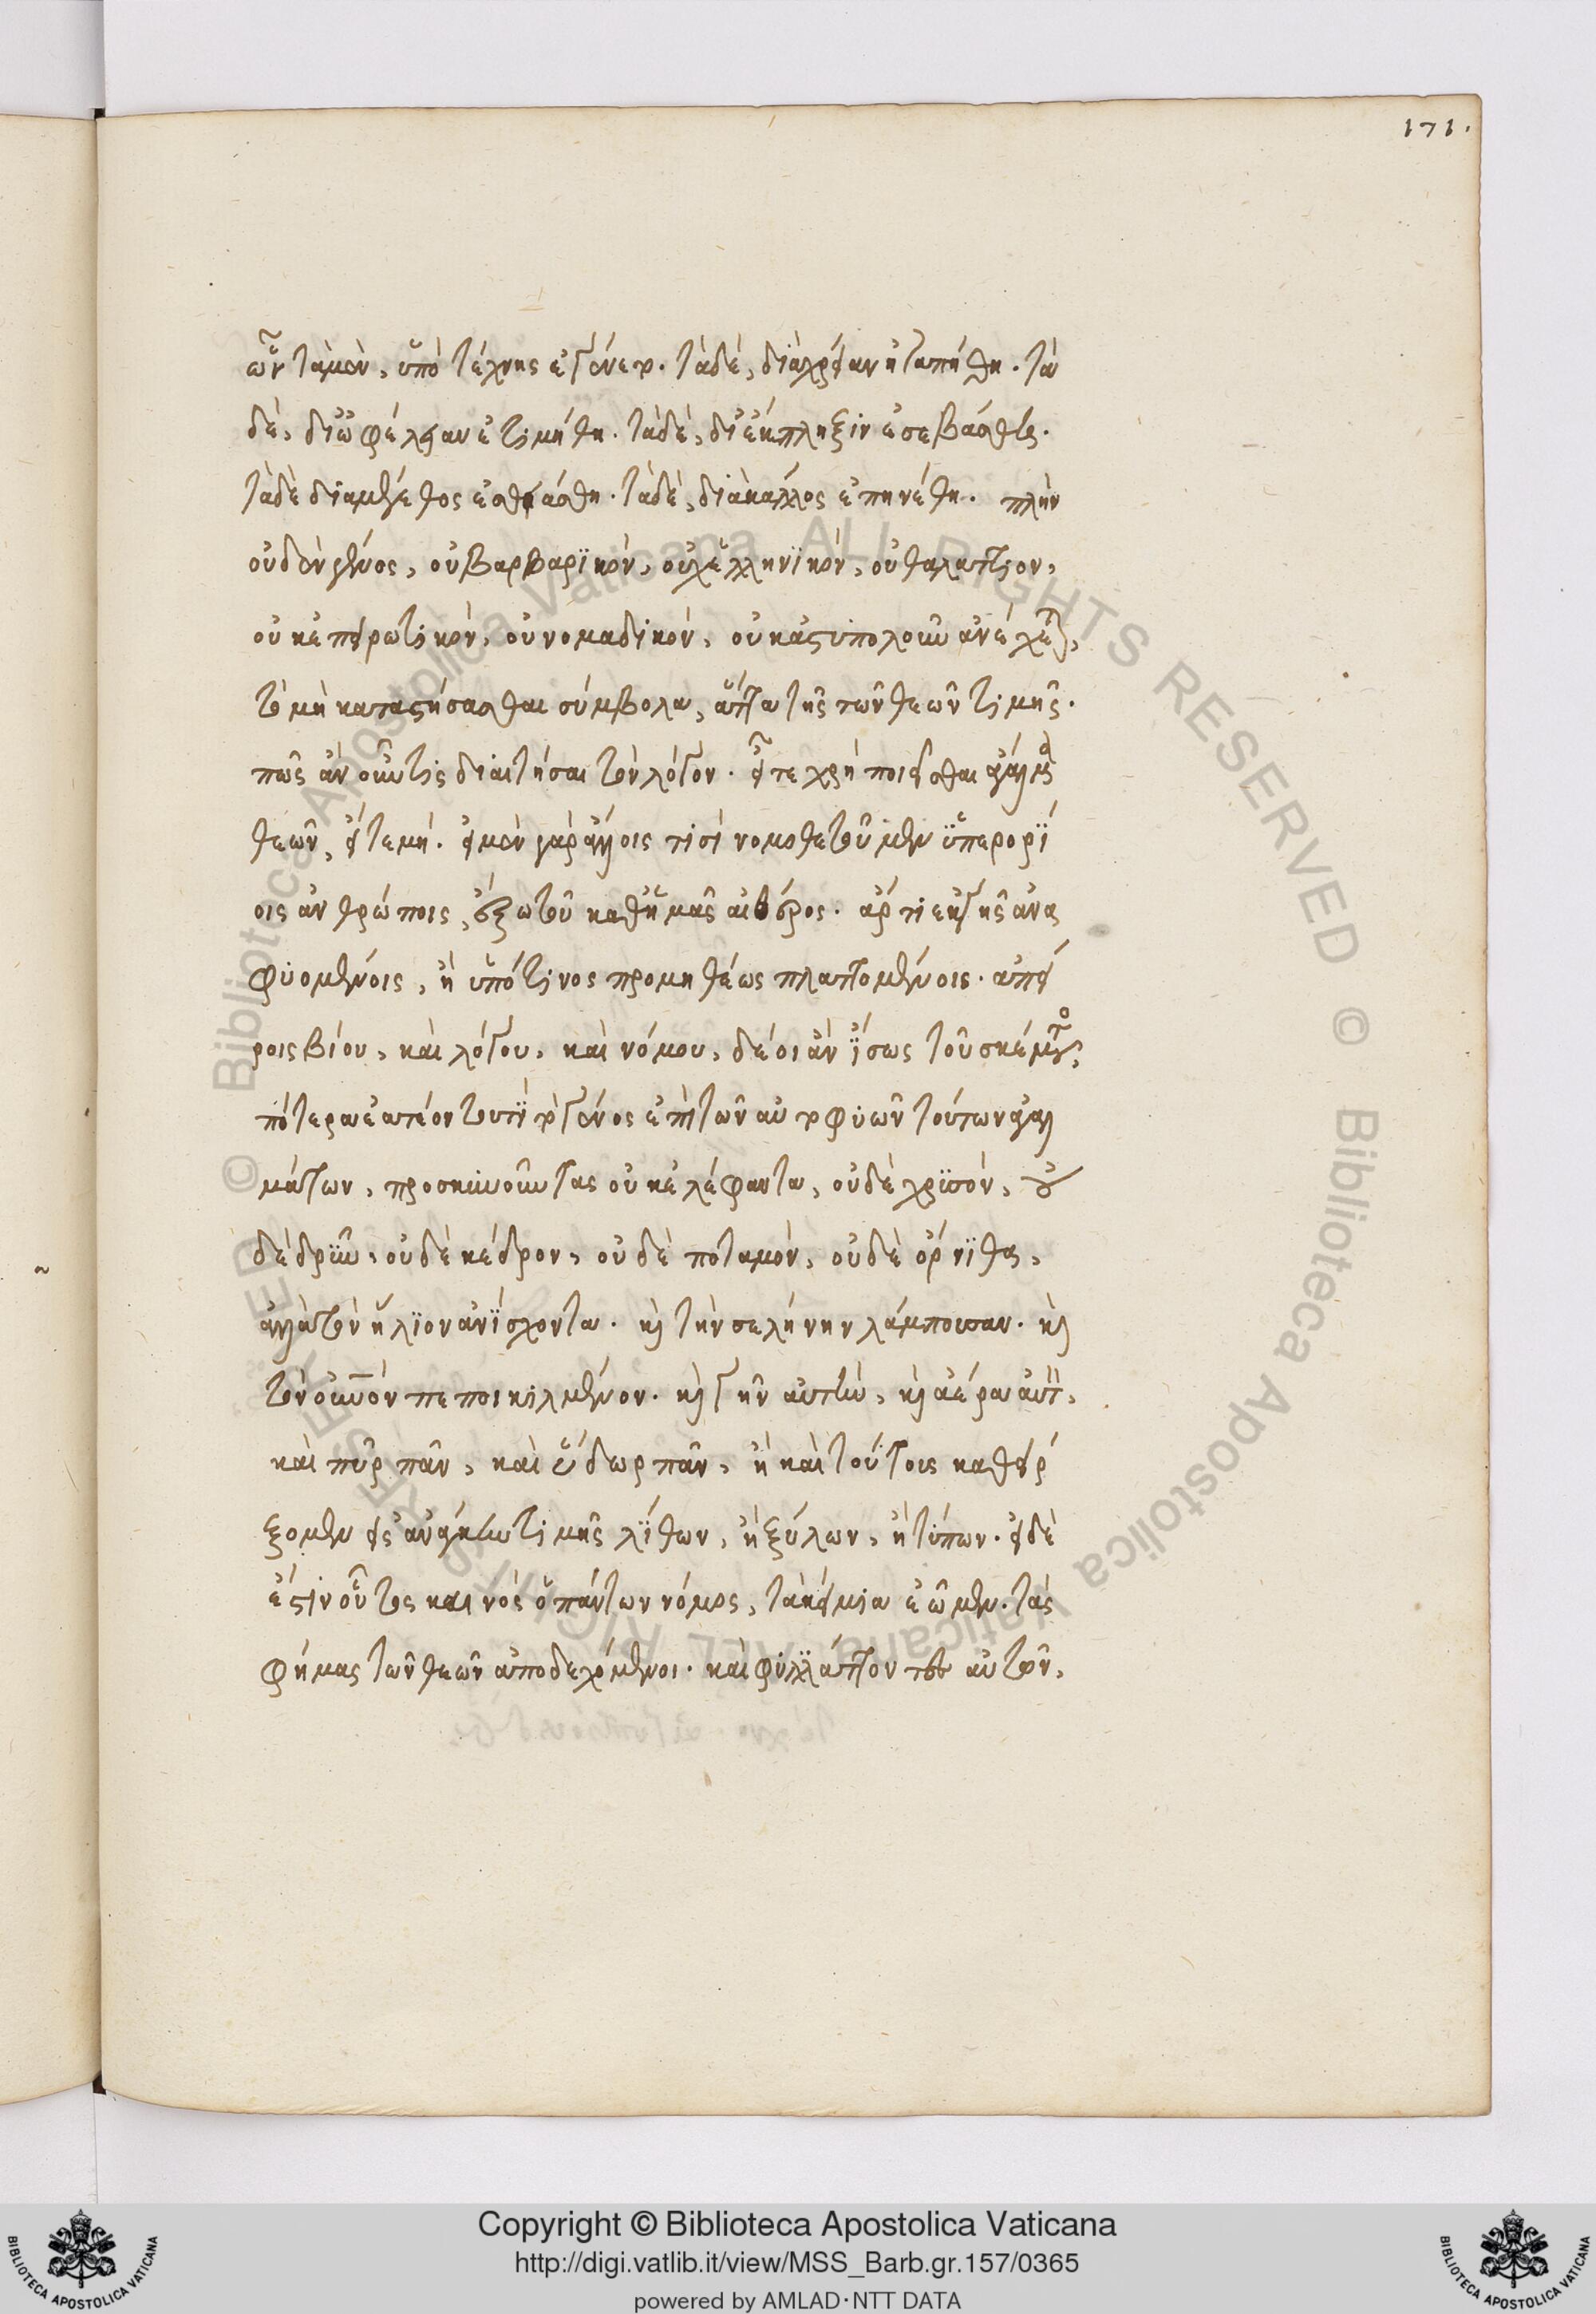 171.
ὧν τὰ μὲν, ὑπὸ τέχνης ἐγένετο. τὰ δὲ, διὰ χρείαν ἠγαπήθη. τὰ
δὲ, δι ὠφέλειαν ἐτιμήθη. τὰ δὲ, δι ἔκπληξιν ἐσεβάσθη.
τὰ δὲ διὰ μέγεθος ἐθειάσθη. τὰ δὲ, διὰ κάλλος ἐπηνέθη. πλὴν
οὐδὲν γένος, οὐ βαρβαρϊκὸν, οὐχ ἑλληνϊκὸν, οὐ θαλάττιον,
οὐκ ἠπειρωτικὸν, οὐ νομαδικὸν, οὐκ ἀστυπολοῦν ἀνέχεται,
τὸ μὴ καταστήσασθαι σύμβολα, ἄττα τῆς τῶν θεῶν τιμῆς.
πῶς ἂν οὖν τὶς διαιτήσαι τὸν λόγον. εἴτε χρὴ ποιεῖσθαι ἀγάλματα
θεῶν, εἴτε μή. εἰ μὲν γὰρ ἄλλοις τισὶ νομοθετοῦμεν ὑπερορϊ
οις ἀνθρώποις, ἔξω τοῦ καθ ἡμᾶς αἰθέρος. ἄρτι ἐκ γῆς ἀνα
φυομένοις, ἢ ὑπό τινος προμηθέως πλαττομένοις. ἀπεί
ροις βίου, καὶ λόγου, καὶ νόμου, δέοι ἂν ἴσως τοῦ σκέμματος,
πότερα ἐατέον τουτῒ τὸ γένος ἐπὶ τῶν αὐτοφυῶν τούτων ἀγαλ
μάτων, προσκυνοῦντας οὐκ ἐλέφαντα, οὐδὲ χρϋσὸν, οὐ
δὲ δρῦν, οὐδὲ κέδρον, οὐδὲ ποταμὸν, οὐδὲ ὄρνϊθα,
ἀλλὰ τὸν ἥλϊον ἀνϊσχοντα. καὶ τὴν σελήνην λάμπουσαν. καὶ
τὸν οὐνὸν πεποικιλμένον. καὶ γῆν αὐτὴν, καὶ ἀέρα αὐτὸν,
καὶ πῦρ πᾶν, καὶ ὕδωρ πᾶν, ἢ καὶ τούτοις καθείρ
ξομεν εἰς ἀνάγκην τιμῆς λϊθων, ἢ ξύλων, ἢ τύπων. εἰ δὲ
ἔστιν οὗτος καινὸς ὁ πάντων νόμος, τὰ κείμενα ἐῶμεν. τὰς
φήμας τῶν θεῶν ἀποδεχόμενοι. καὶ φυλάττοντες αὐτῶν,
Copyright © Biblioteca Apostolica Vaticana
http://digi.vatlib.it/view/MSS_Barb.gr.157/0365
powered by AMLAD·NTT DATA
© Biblioteca Apostolica Vaticana ALL RIGHTS RESERVED © Biblioteca Apostolica Vaticana ALL RIGHTS RESERVED
BIBLIOTECA APOSTOLICA VATICANA
BIBLIOTECA APOSTOLICA VATICANA